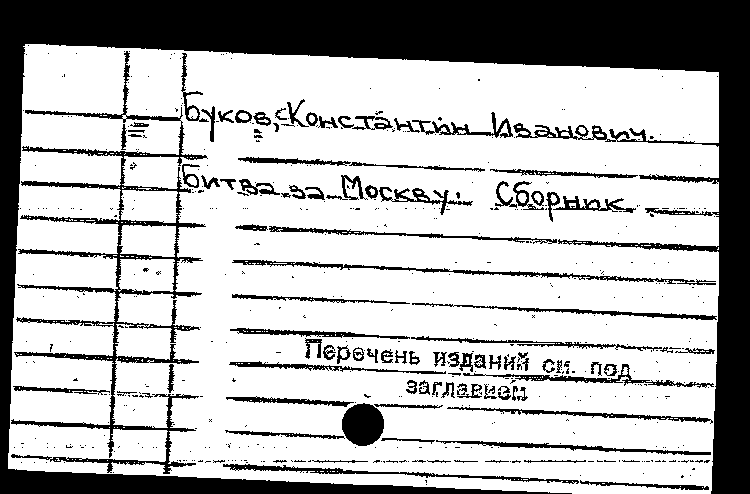 Буков, Константин Иванович.
Битва за Москву. Сборник
Перечень изданий см. под
заглавием